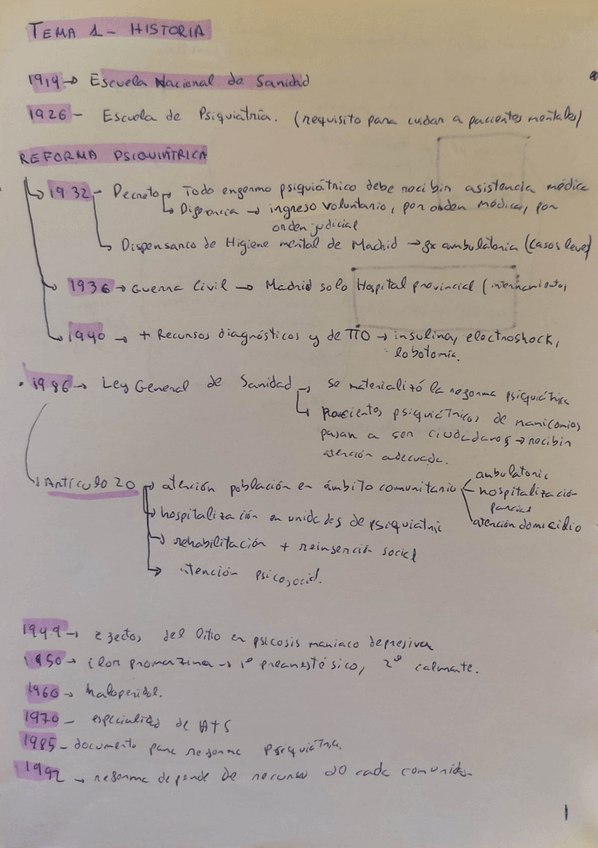 TEMA 1 - HISTORIA
1919 → Escuela Nacional de Sanidad
1926 - Escuela de Psiquiatría. (requisito para cuidar a pacientes mentales)
REFORMA PSIQUIÁTRICA
1932 - Decreto → Todo enfermo psiquiátrico debe recibir asistencia médica
→ Diferencia → ingreso voluntario, por orden médica, por
orden judicial
→ Dispensario de Higiene mental de Madrid → ambulatoria (casos leves)
1936 → Guerra Civil → Madrid solo Hospital provincial (internamientos
1940 → + Recursos diagnósticos y de TTO → insulina, electroshock,
lobotomia.
1986 → Ley General de Sanidad → se materializó la reforma psiquiátrica
→ Pacientes psiquiátricos de manicomios
pasan a ser ciudadanos → reciben
atención adecuada.
Artículo 20 → atención población en ámbito comunitario ambulatoria
hospitalización
parcial
atención domicilio
→ hospitalización en unidades de psiquiatria
→ rehabilitación + reinserción social
→ atención psicosocial.
1949 → efectos del litio en psicosis maniaco depresiva
1950 → clorpromazina → 1º preanestésico, 2º calmante.
1960 → haloperidol.
1970 - especialidad de ATS
1985 - documento para reforma psiquiátrica.
1992 → reforma depende de recursos de cada comunidad
1